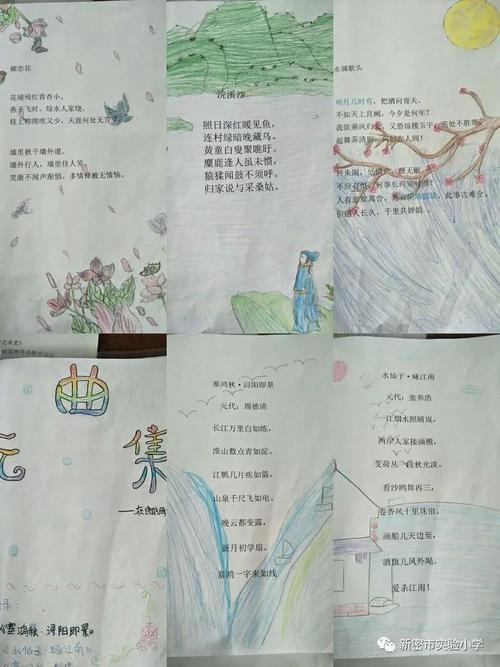 蝶恋花
花褪残红青杏小。
燕子飞时，绿水人家绕。
枝上柳绵吹又少，天涯何处无芳草。
墙里秋千墙外道。
墙外行人，墙里佳人笑。
笑渐不闻声渐悄，多情却被无情恼。
浣溪沙
照日深红暖见鱼，
连村绿暗晚藏乌。
黄童白叟聚睢盱。
麋鹿逢人虽未惯，
猿猱闻鼓不须呼。
归家说与采桑姑。
水调歌头
明月几时有，把酒问青天。
不知天上宫阙，今夕是何年？
我欲乘风归去，又恐琼楼玉宇，高处不胜寒。
起舞弄清影，何似在人间！
转朱阁，低绮户，照无眠。
不应有恨，何事长向别时圆？
人有悲欢离合，月有阴晴圆缺，此事古难全。
但愿人长久，千里共婵娟。
曲
元 集
塞鸿秋·浔阳即景。
《水仙子·咏江南》
塞鸿秋·浔阳即景
元代：周德清
长江万里白如练，
淮山数点青如淀。
江帆几片疾如箭，
山泉千尺飞如电。
晚云都变露，
新月初学扇。
塞鸿一字来如线
水仙子·咏江南
元代：张养浩
一江烟水照晴岚，
两岸人家接画檐，
芰荷丛一段秋光淡。
看沙鸥舞再三，
卷香风十里珠帘。
画船儿天边至，
酒旗儿风外飐。
爱杀江南！
新密市实验小学